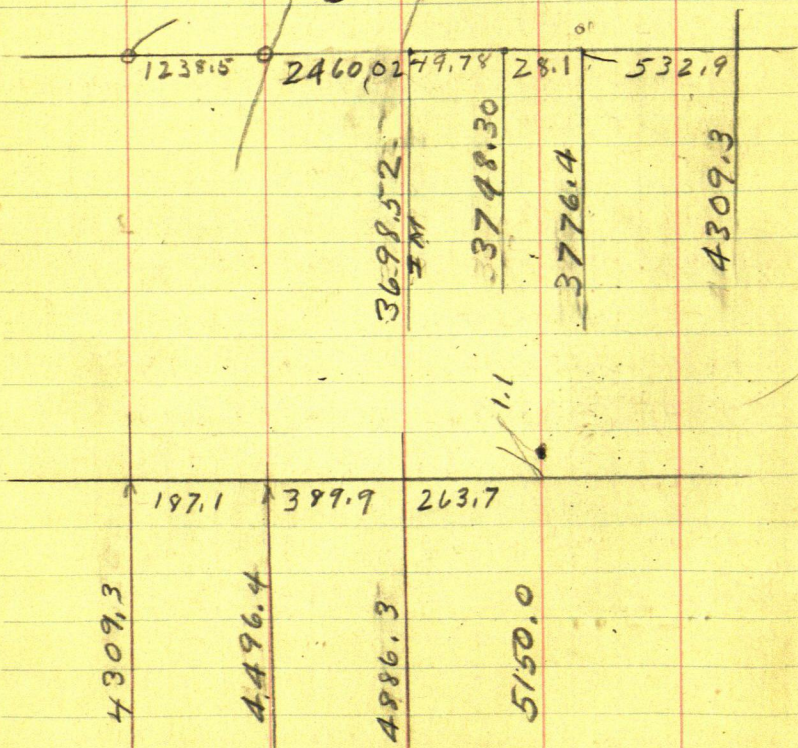 1238.5 2460.02 49.78 28.1 532.9
3698.52
IM
3748.30
3776.4
4309.3
1.1
187.1 389.9 263.7
4309.3
4496.4
4886.3
5150.0